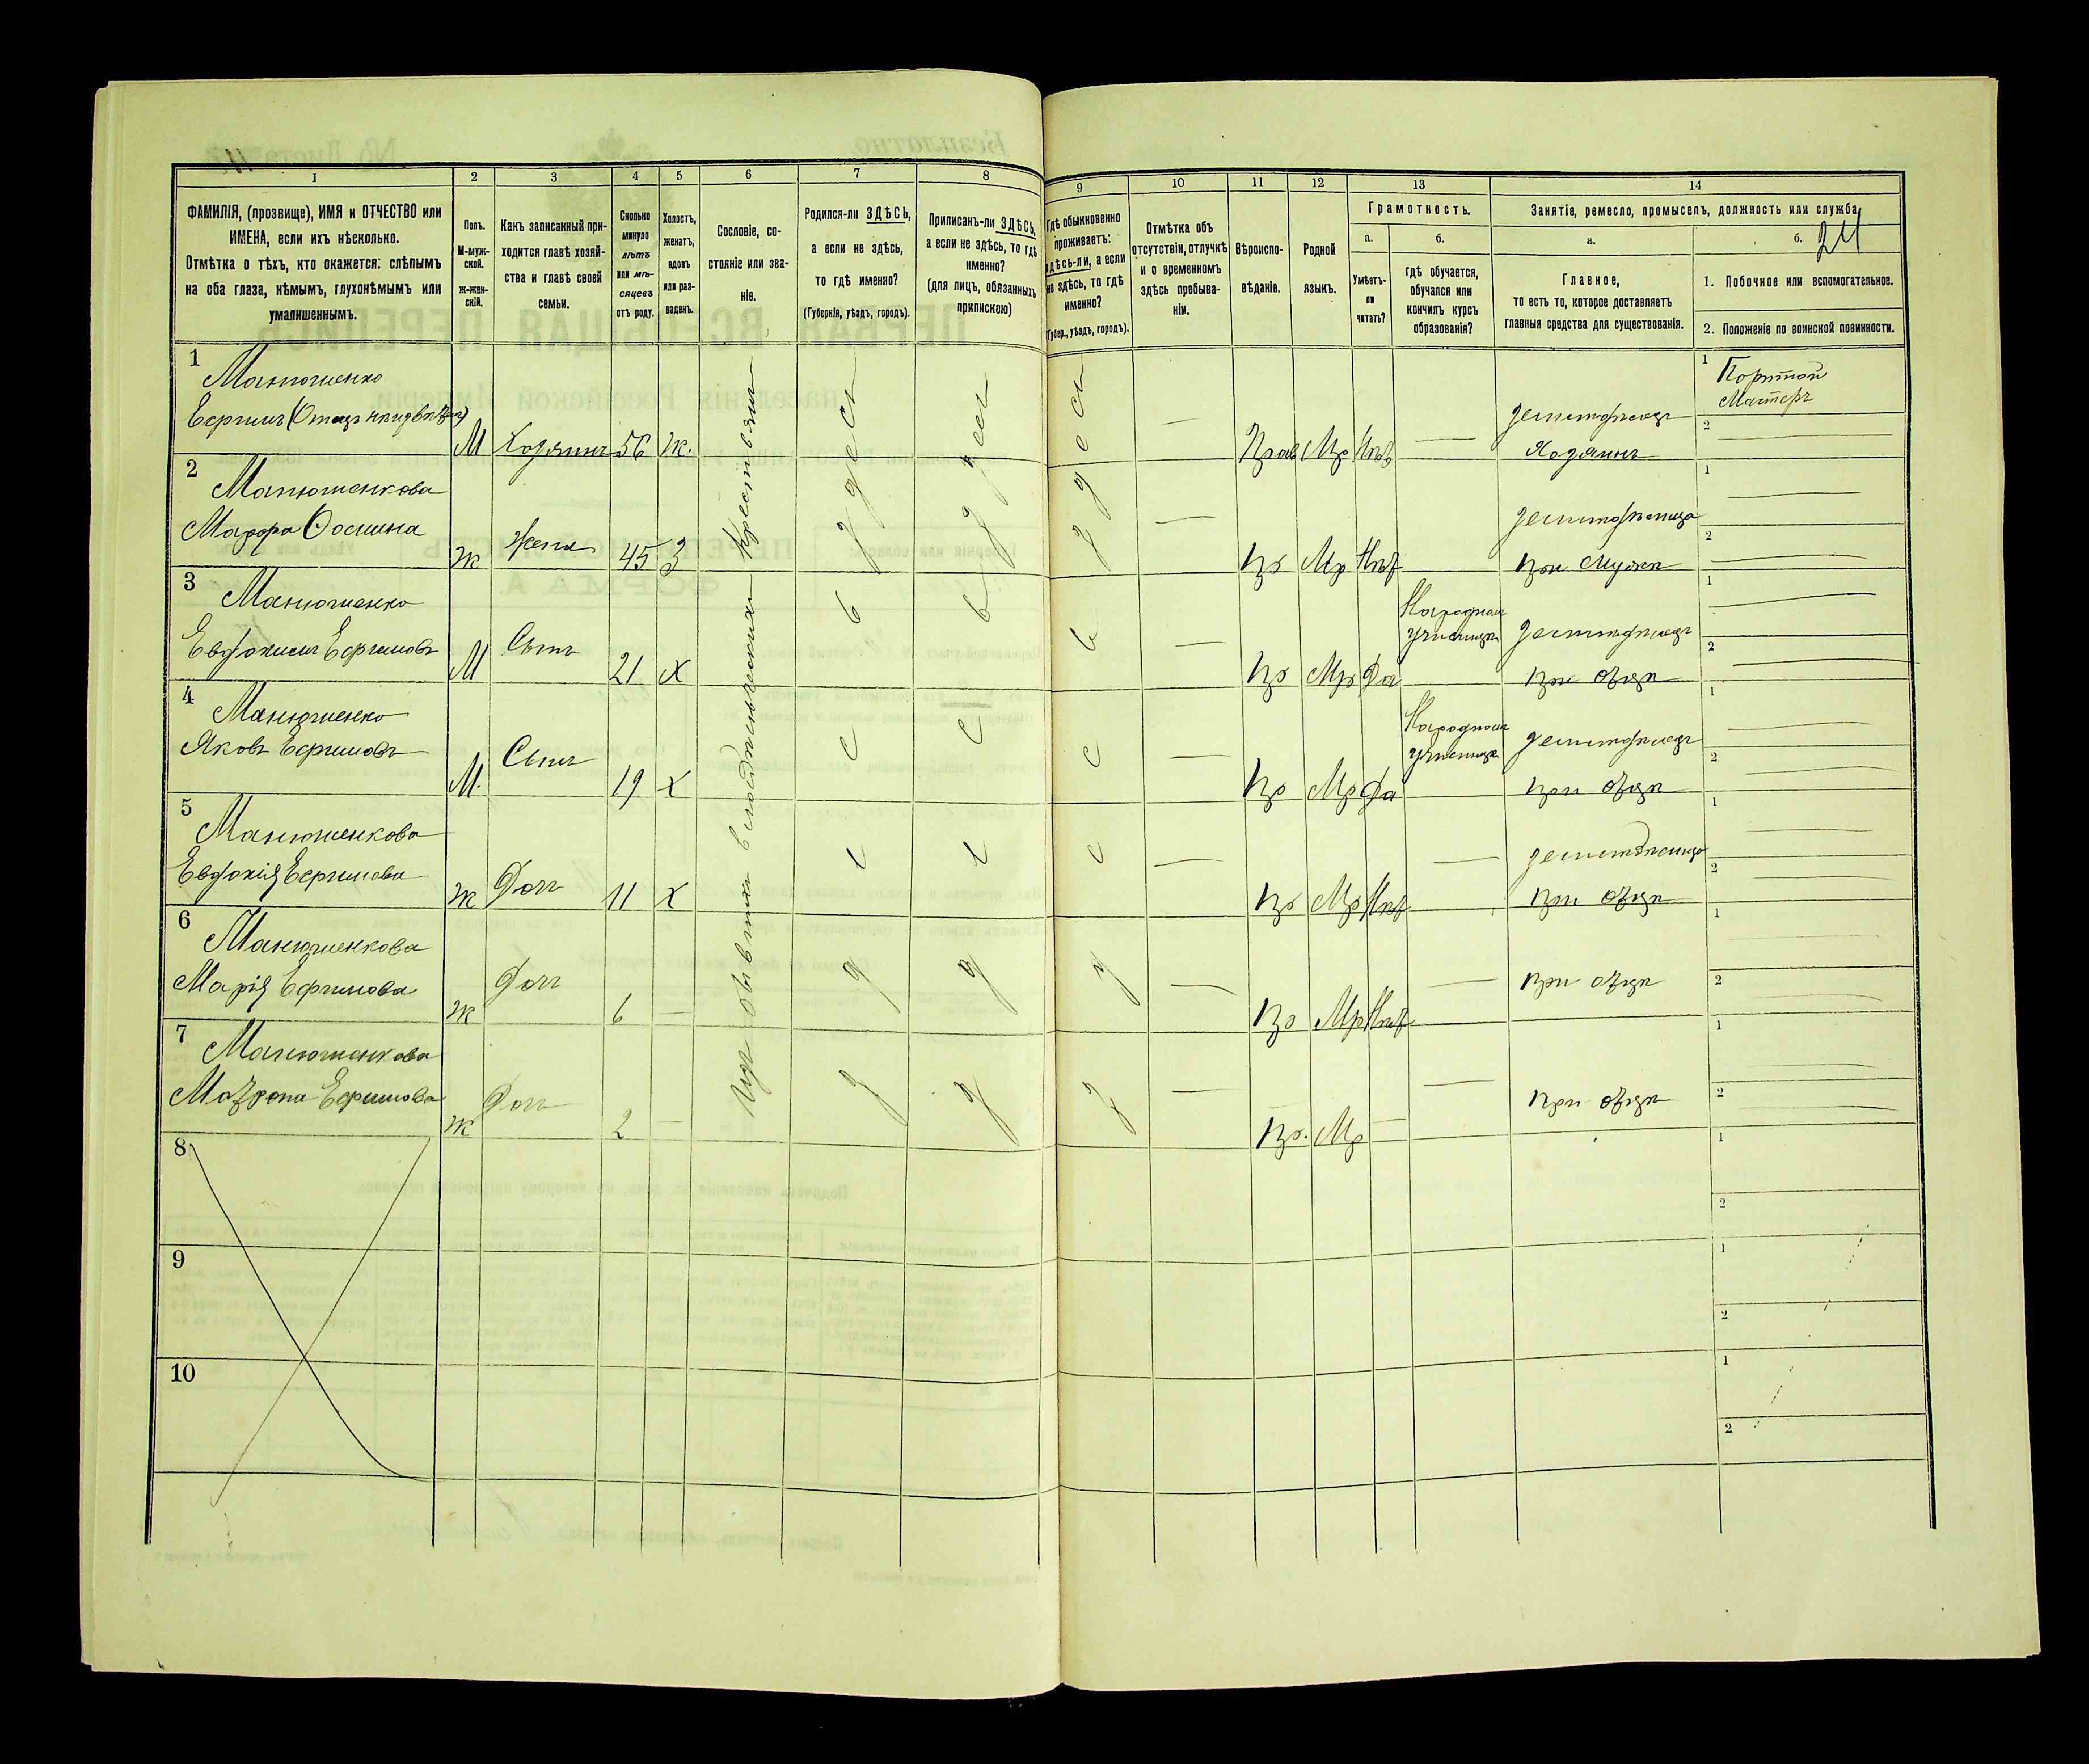 1 2 3 4 5 6 7 8 9 10 11 12 13 14
ФАМИЛІЯ, (прозвище), ИМЯ и ОТЧЕСТВО или
ИМЕНА, если ихъ нѣсколько.
Отмѣтка о тѣхъ, кто окажется: слѣпымъ
на оба глаза, нѣмымъ, глухонѣмымъ или
умалишеннымъ.
Полъ.
М-муж-
ской.
Ж-жен-
скій.
Какъ записанный при-
ходится главѣ хозяй-
ства и главѣ своей
семьи.
Сколько
минуло
лѣтъ
или мѣ-
сяцевъ
отъ роду.
Холостъ,
женатъ,
вдовъ
или раз-
веденъ.
Сословіе, со-
стояніе или зва-
ніе.
Родился-ли ЗДѢСЬ,
а если не здѣсь,
то гдѣ именно?
(Губернія, уѣздъ, городъ).
Приписанъ-ли ЗДѢСЬ,
а если не здѣсь, то гдѣ
именно?
(для лицъ, обязанныхъ
припискою)
Гдѣ обыкновенно
проживаетъ:
здѣсь-ли, а если
не здѣсь, то гдѣ
именно?
(Губер., уѣздъ, городъ).
Отмѣтка объ
отсутствіи, отлучкѣ
и о временномъ
здѣсь пребыва-
ніи.
Вѣроиспо-
вѣданіе.
Родной
языкъ.
Грамотность.
а. б.
Умѣетъ-
ли
читать?
гдѣ обучается,
обучался или
кончилъ курсъ
образованія?
Занятіе, ремесло, промыселъ, должность или служба
24
а. б.
Главное,
то есть то, которое доставляетъ
главныя средства для существованія.
1. Побочное или вспомогательное.
2. Положеніе по воинской повинности.
Изъ бывшихъ владѣльческихъ крестьянъ
здесь
здесь
здесь
1
Манюшенко
Ефимъ
М Хозяинъ 56 ж. Прав Мр Нѣтъ
земледѣлецъ
Хозяинъ
1 Портной
Мастеръ
2
2
Манюшенкова
Марфа
Ж Жена 45 З Пр Мр Нѣт
земледѣлица
при мужѣ
1
2
3
Манюшенко
Евдокимъ Ефимовъ
М Сынъ 21 Х Пр Мр Да
Народная
училище
земледѣлецъ
при отцѣ
1
2
4
Манюшенко
Яковъ Ефимовъ
М. Сынъ 19 Х Пр Мр Да
Народная
училище
земледѣлецъ
при отцѣ
1
2
5
Манюшенкова
Евдокія Ефимова
Ж Доч 11 Х Пр Мр Нѣт
земледѣлица
при отцѣ
1
2
6
Манюшенкова
Марія Ефимова
Ж Доч 6 — Пр Мр Нѣт
при отцѣ
1
2
7
Манюшенкова
Матрона Ефимова
Ж Доч 2 — Пр. Мр —
при отцѣ
1
2
8
1
2
9
1
2
10
1
2